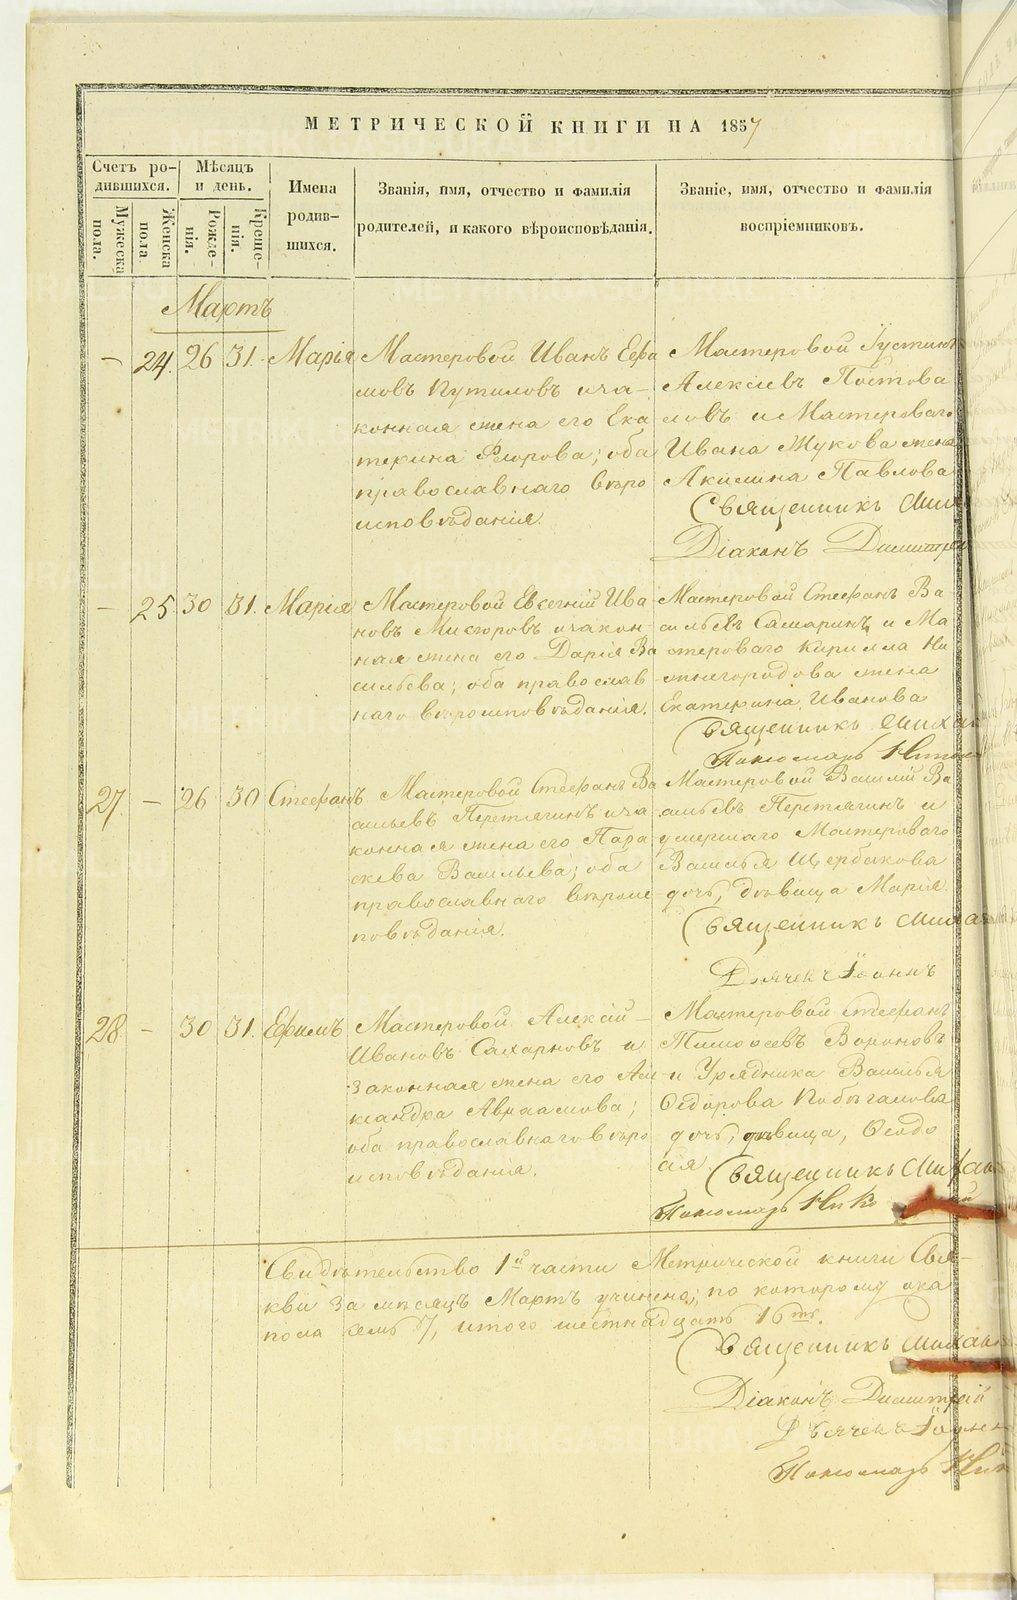 МЕТРИЧЕСКОЙ КНИГИ НА 1857
Счетъ ро-
дившихся.
Мужеска
пола.
Женска
пола
Мѣсяцъ
и день.
Рожде-
нія.
Креще-
нія.
Имена
родив-
шихся.
Званія, имя, отчество и фамилія
родителей, и какого вѣроисповѣданія.
Званіе, имя, отчество и фамилія
воспріемниковъ.
Мартъ
— 24. 26 31. Марія
Мастеровой Иванъ Ефи
мовъ Путиловъ и за-
конная жена его Ека
терина Флорова; оба
православнаго вѣро
исповѣданія.
Мастеровой Іустинъ
Алексѣевъ
ловъ и Мастероваго
Ивана Жукова жена
Акилина Павлова
Священникъ
Діаконъ Димитрій
— 25. 30 31. Марія
Мастеровой Евгеній Ива
новъ и закон
ная жена его Дарія Ва
сильева; оба православ
наго вѣроисповѣданія.
Мастеровой Стефанъ Ва
сильевъ Самаринъ и Ма
стероваго Кирилла Ни
жнегородова жена
Екатерина Иванова
Священникъ
Пономарь
27 — 26 30 Стефанъ
Мастеровой Стефанъ Ва
сильевъ Перетягинъ и за
конная жена его Пара
скева Васильева; оба
православнаго вѣроис
повѣданія.
Мастеровой Василій Ва
сильевъ Перетягинъ и
умершаго Мастероваго
Василья Щербакова
дочь, дѣвица Марія.
Священникъ
Дьячекъ Іоаннъ
28 — 30 31. Ефимъ
Мастеровой Алексѣй
Ивановъ Сахарновъ и
законная жена его Але
ксандра Авраамова;
оба православнаго вѣро
исповѣданія.
Мастеровой Стефанъ
Тимоѳеевъ Вороновъ
и Урядника Василья
Ѳедорова
дочь, дѣвица, Ѳеодо
сія.
Священникъ
Пономарь
Свидѣтельство 1й части Метрической книги Свя-
кви за мѣсяцъ Мартъ учинена; по которому ока
пола семь 7, итого шестнадцать 16ть.
Священникъ
Діаконъ Димитрій
Дьячекъ Іоаннъ
Пономарь